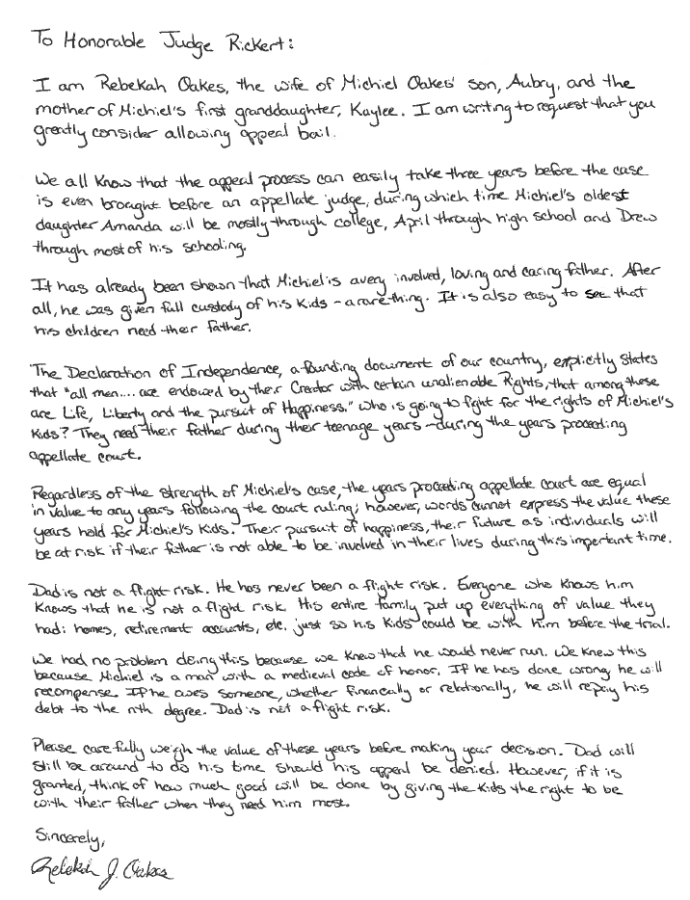 To Honorable Judge Rickert:
I am Rebekah Oakes, the wife of Michiel Oakes' son, Aubry, and the
mother of Michiel's first granddaughter, Kaylee. I am writing to request that you
greatly consider allowing appeal bail.
We all know that the appeal process can easily take three years before the case
is even brought before an appellate judge, during which time Michiel's oldest
daughter Amanda will be mostly through college, April through high school and Drew
through most of his schooling.
It has already been shown that Michiel is a very involved, loving and caring father. After
all, he was given full custody of his kids - a rare thing. It is also easy to see that
his children need their father.
The Declaration of Independence, a founding document of our country, explicitly states
that "all men.... are endowed by their Creator with certain unalienable Rights, that among these
are Life, Liberty and the pursuit of Happiness." Who is going to fight for the rights of Michiel's
kids? They need their father during their teenage years - during the years proceeding
appellate court.
Regardless of the strength of Michiel's case, the years proceeding appellate court are equal
in value to any years following the court ruling; however, words cannot express the value these
years hold for Michiel's kids. Their pursuit of happiness, their future as individuals will
be at risk if their father is not able to be involved in their lives during this important time.
Dad is not a flight risk. He has never been a flight risk. Everyone who knows him
knows that he is not a flight risk. His entire family put up everything of value they
had: homes, retirement accounts, etc. just so his kids could be with him before the trial.
We had no problem doing this because we knew that he would never run. We knew this
because Michiel is a man with a medieval code of honor. If he has done wrong, he will
recompense. If he owes someone, whether financially or relationally, he will repay his
debt to the nth degree. Dad is not a flight risk.
Please carefully weigh the value of these years before making your decision. Dad will
still be around to do his time should his appeal be denied. However, if it is
granted, think of how much good will be done by giving the kids the right to be
with their father when they need him most.
Sincerely,
Rebekah J. Oakes